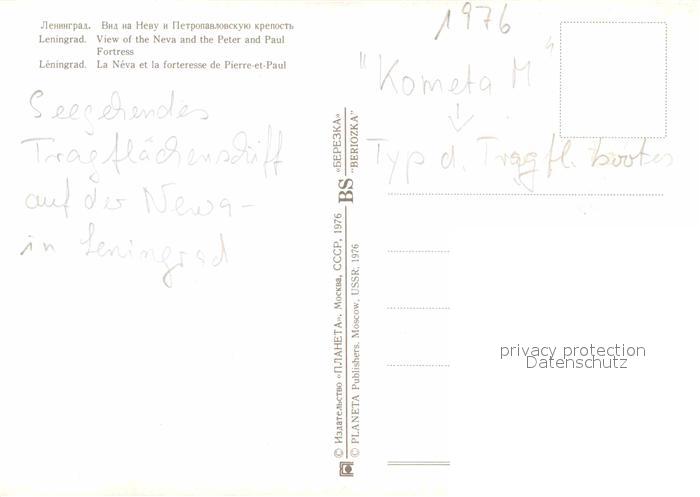 Ленинград. Вид на Неву и Петропавловскую крепость
Leningrad. View of the Neva and the Peter and Paul
Fortress
Léningrad. La Néva et la forteresse de Pierre-et-Paul
Seegehendes
Tragflächenschiff
auf der Newa-
in Leningrad
© Издательство «ПЛАНЕТА». Москва, СССР, 1976
© PLANETA Publishers. Moscow, USSR, 1976
BS «БЕРЕЗКА»
"BERIOZKA"
1976
"Kometa M"
Typ d. Tragfl. bootes
privacy protection
Datenschutz